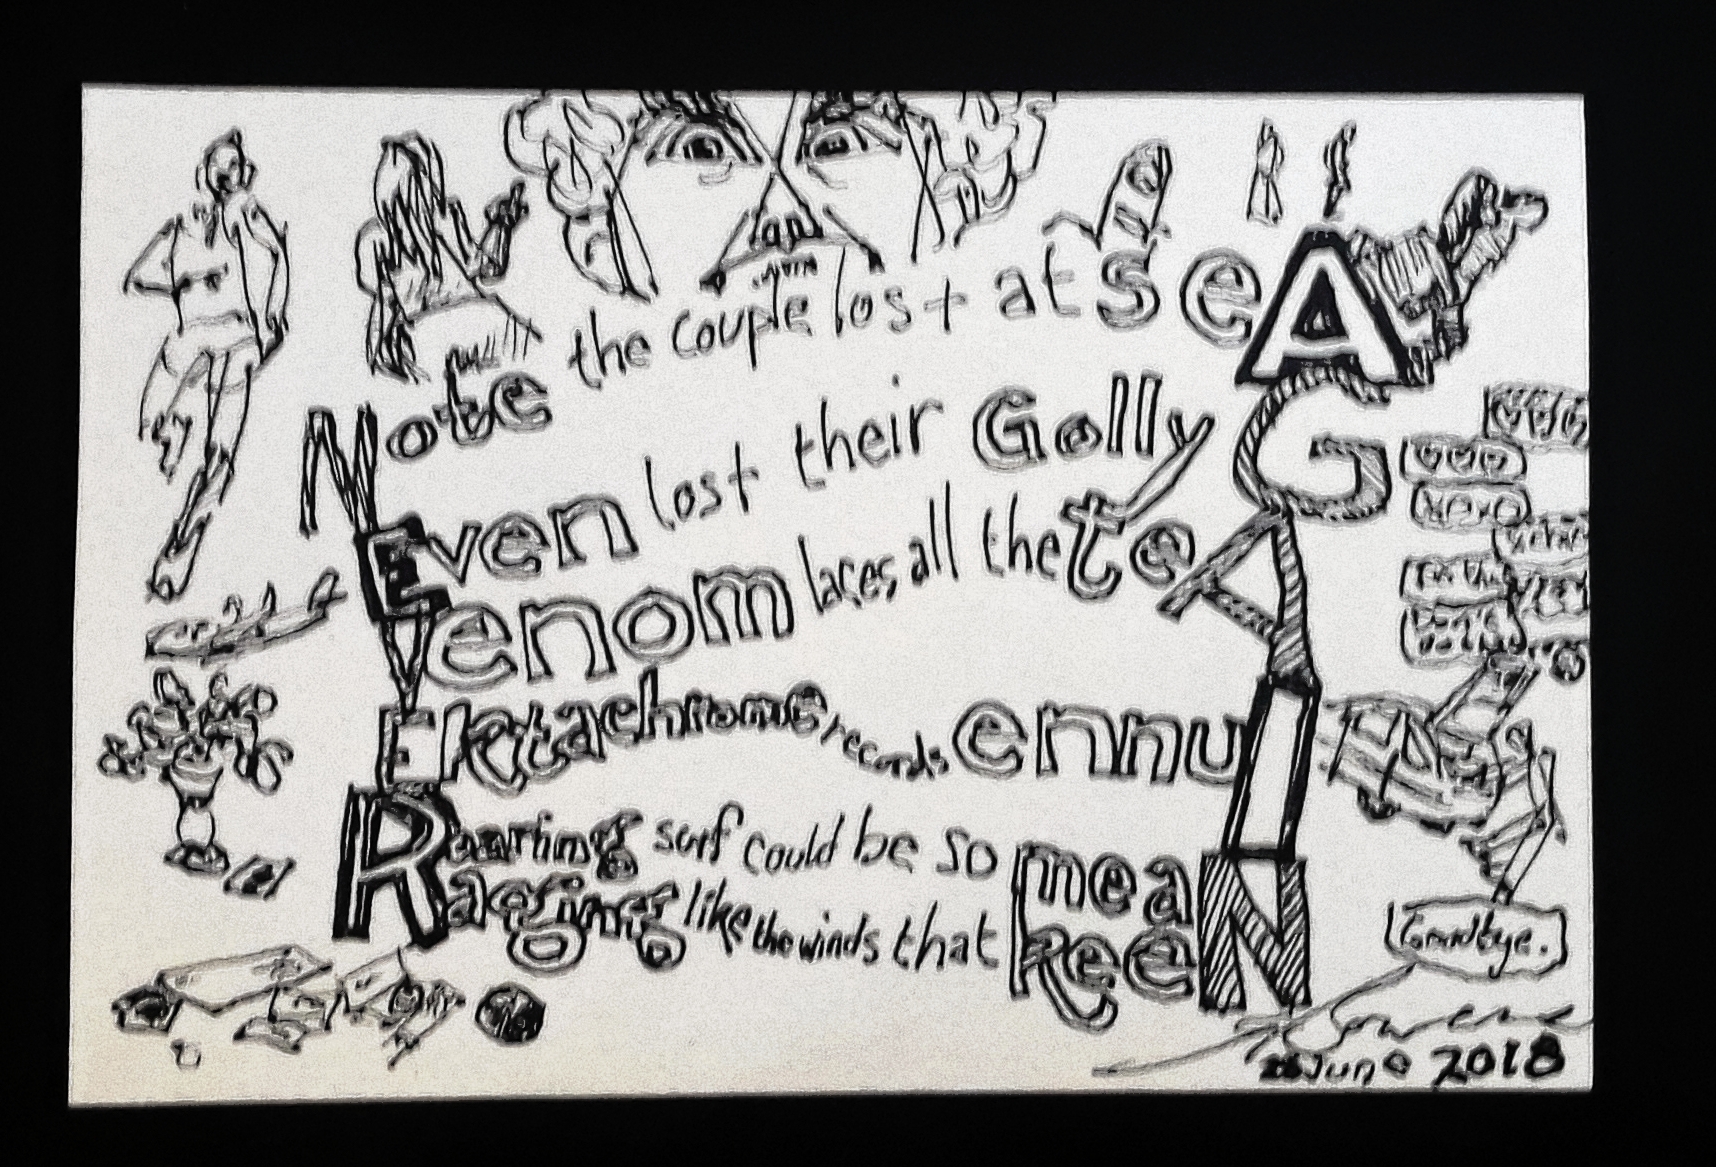 Note the couple lost at seA
Even lost their Golly G
Venom laces all the teA
Ektachrome records ennuI
Roaring surf could be so meaN
Raging like the winds that KeeN
Goodbye.
26 June 2018